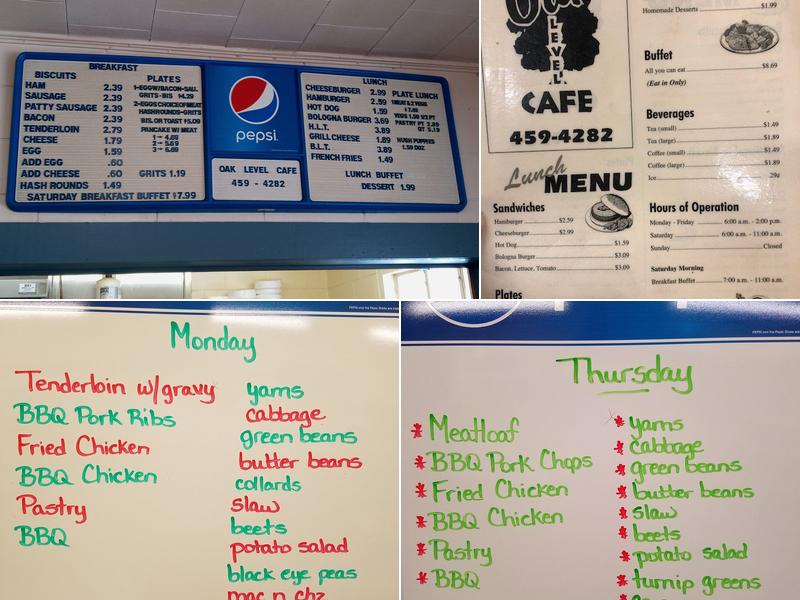 BREAKFAST
BISCUITS
HAM 2.39
SAUSAGE 2.39
PATTY SAUSAGE 2.39
BACON 2.39
TENDERLOIN 2.79
CHEESE 1.79
EGG 1.59
ADD EGG .60
ADD CHEESE .60
HASH ROUNDS 1.49
PLATES
1-EGGW/BACON-SAU.
GRITS-BIS $4.29
2-EGGS CHOICE OF MEAT
HASHROUNDS-GRITS
BIS. OR TOAST $5.00
PANCAKE W/ MEAT
GRITS 1.19
SATURDAY BREAKFAST BUFFET $7.99
pepsi
OAK LEVEL CAFE
459 - 4282
LUNCH
CHEESEBURGER 2.99
HAMBURGER 2.59
HOT DOG 1.59
BOLOGNA BURGER 3.69
H.L.T. 3.89
GRILL CHEESE 1.89
B.L.T. 3.89
FRENCH FRIES 1.49
PLATE LUNCH
HUSH PUPPIES
1.59 DOZ
LUNCH BUFFET
DESSERT 1.99
LEVEL
CAFE
459-4282
Lunch MENU
Sandwiches
Hamburger $2.59
Cheeseburger $2.99
Hot Dog $1.59
Bologna Burger $3.09
Bacon, Lettuce, Tomato $3.09
Plates
Homemade Desserts $1.99
Buffet
All you can eat $8.69
(Eat in Only)
Beverages
Tea (small) $1.49
Tea (large) $1.89
Coffee (small) $1.49
Coffee (large) $1.89
Ice 29¢
Hours of Operation
Monday - Friday 6:00 a.m. - 2:00 p.m.
Saturday 6:00 a.m. - 11:00 a.m.
Sunday Closed
Saturday Morning
Breakfast Buffet 7:00 a.m. - 11:00 a.m.
Monday
Tenderloin w/gravy
BBQ Pork Ribs
Fried Chicken
BBQ Chicken
Pastry
BBQ
yams
cabbage
green beans
butter beans
collards
slaw
beets
potato salad
black eye peas
mac n chz
Thursday
* Meatloaf
* BBQ Pork Chops
* Fried Chicken
* BBQ Chicken
* Pastry
* BBQ
* yams
* cabbage
* green beans
* butter beans
* slaw
* beets
* potato salad
* turnip greens